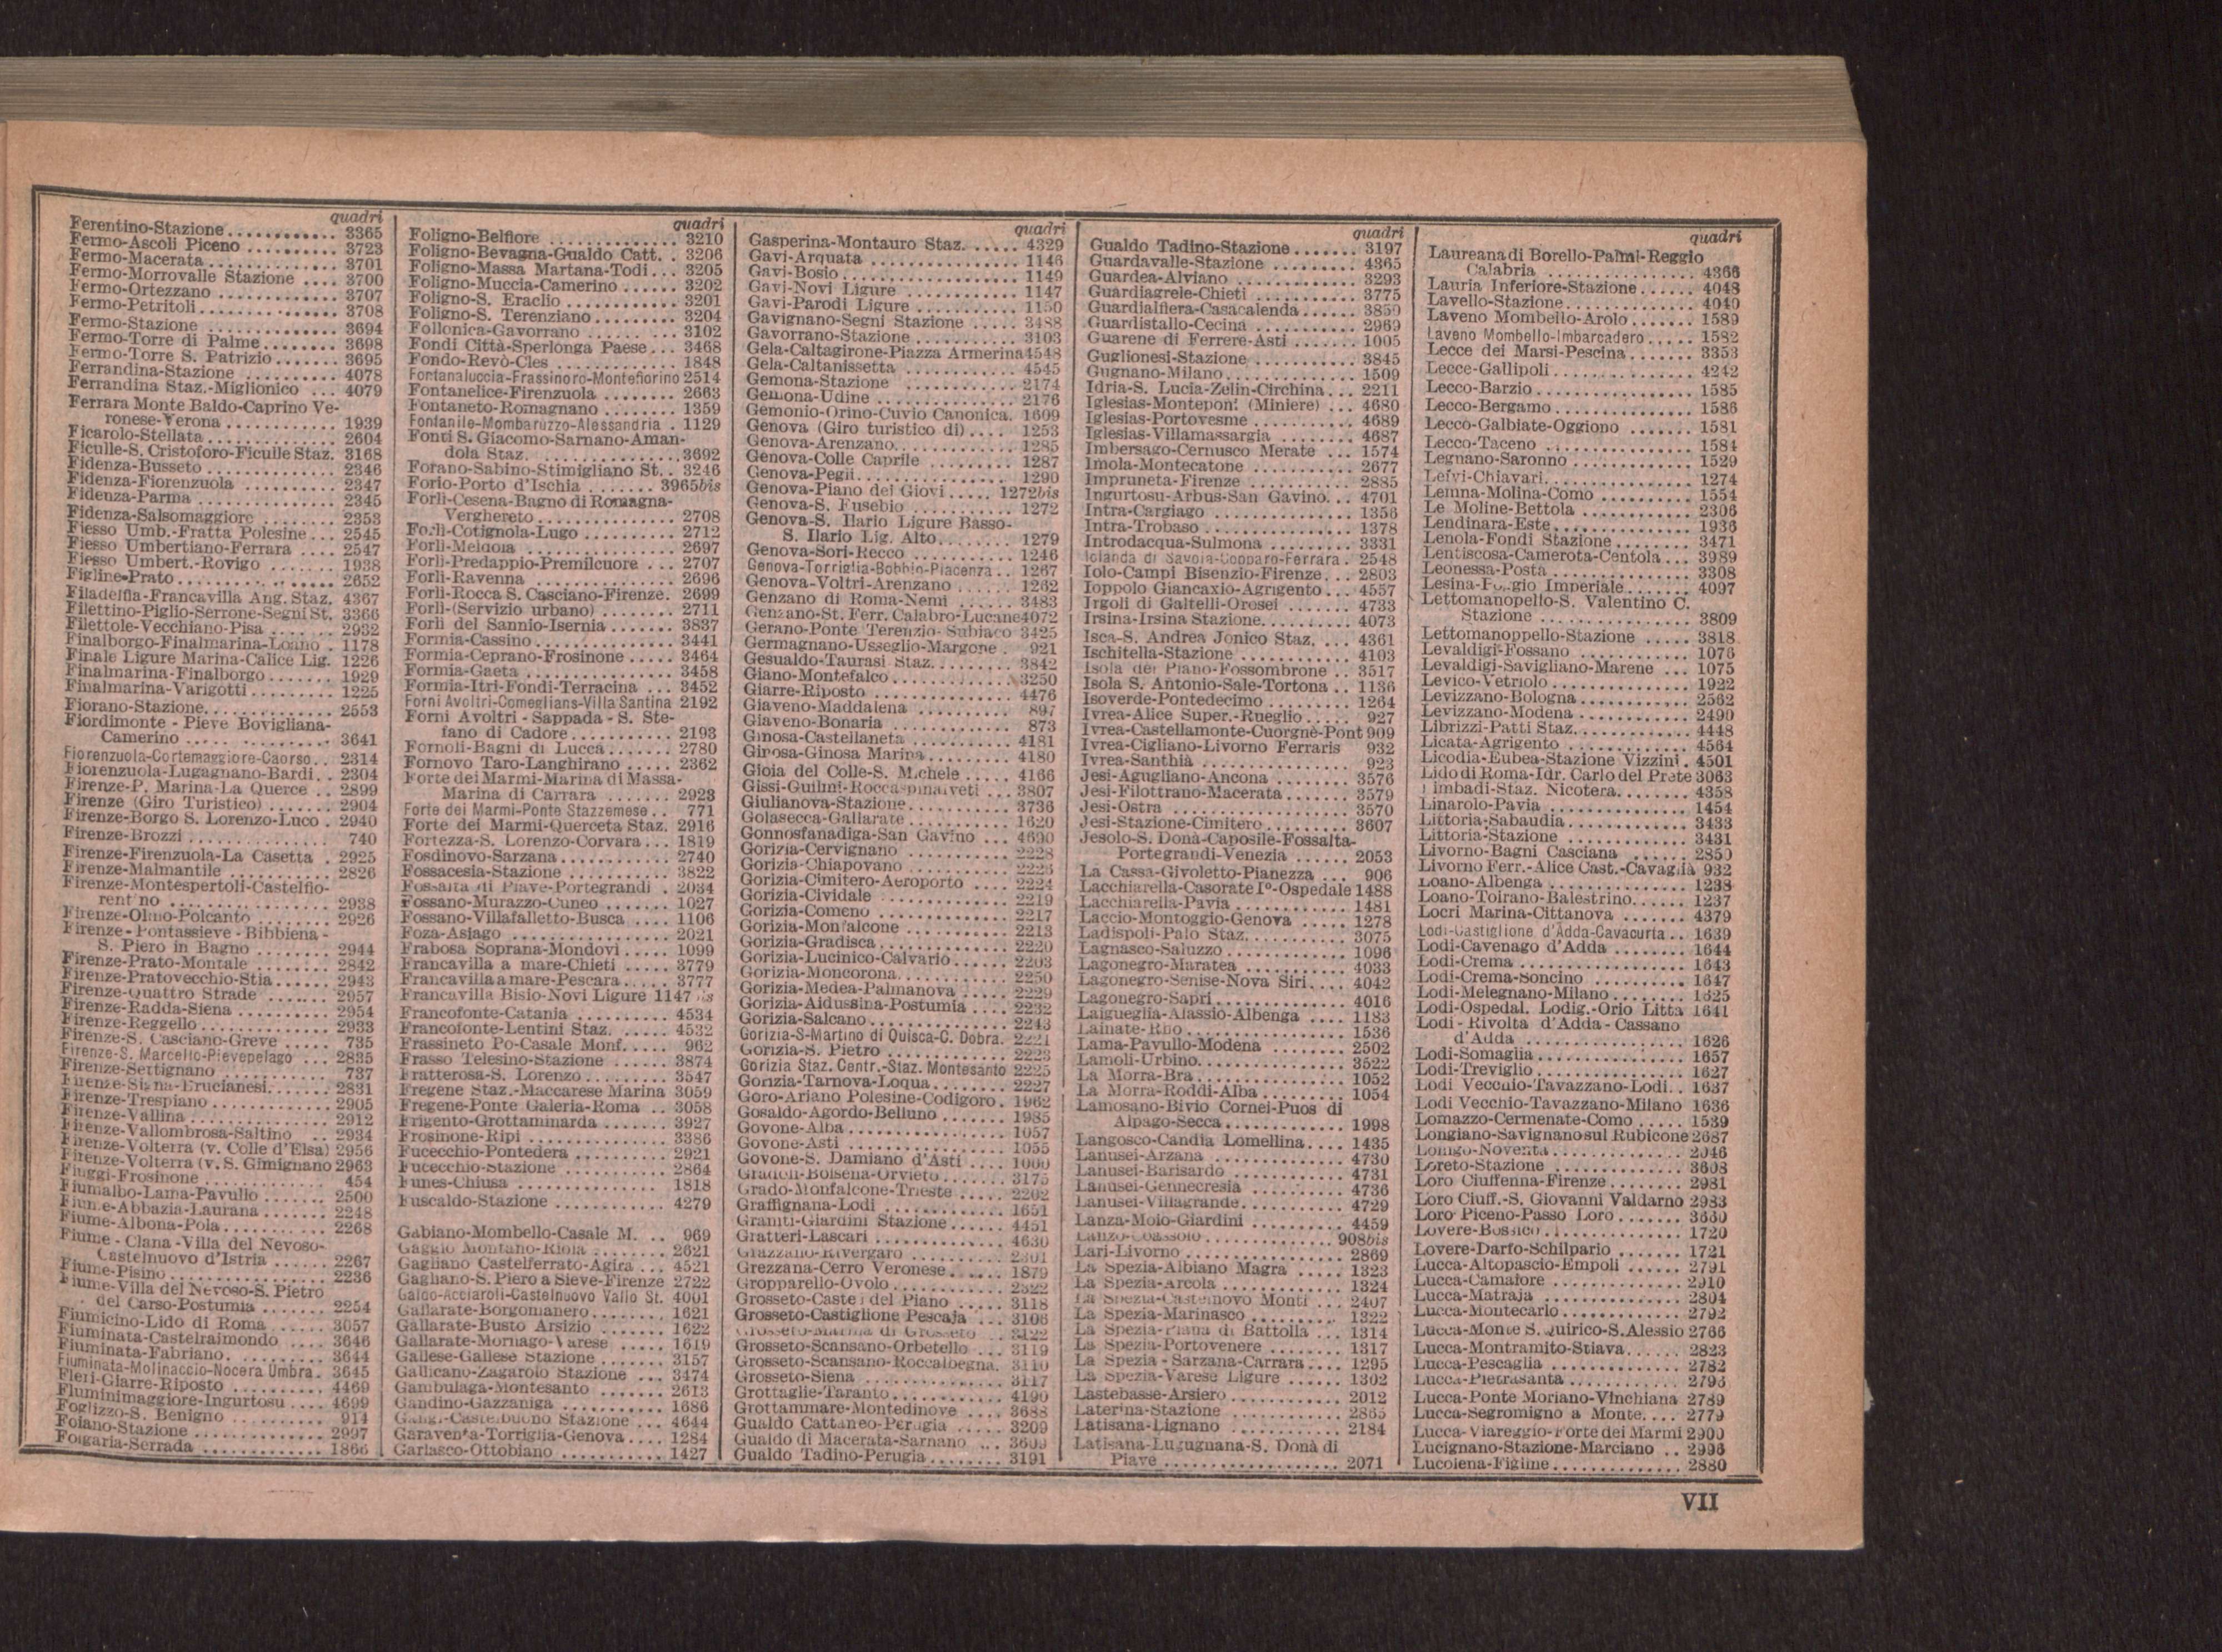 quadri
Ferentino-Stazione............ 3365
Fermo-Ascoli Piceno .......... 3723
Fermo-Macerata.............. 3701
Fermo-Morrovalle Stazione .... 3700
Fermo-Ortezzano ............ 3707
Fermo-Petritoli.............. 3708
Fermo-Stazione ............. 3694
Fermo-Torre di Palme........ 3698
Fermo-Torre S. Patrizio....... 3695
Ferrandina-Stazione ......... 4078
Ferrandina Staz.-Miglionico ... 4079
Ferrara Monte Baldo-Caprino Ve-
ronese-Verona ........... 1939
Ficarolo-Stellata ............. 2604
Ficulle-S. Cristoforo-Ficulle Staz. 3168
Fidenza-Busseto ............. 2346
Fidenza-Fiorenzuola ......... 2347
Fidenza-Parma ............. 2345
Fidenza-Salsomaggiore ....... 2353
Fiesso Umb.-Fratta Polesine... 2545
Fiesso Umbertiano-Ferrara .... 2547
Fiesso Umbert.-Rovigo ....... 1938
Figline-Prato................ 2652
Filadelfia-Francavilla Ang. Staz. 4367
Filettino-Piglio-Serrone-Segni St. 3366
Filettole-Vecchiano-Pisa ...... 2932
Finalborgo-Finalmarina-Loano . 1178
Finale Ligure Marina-Calice Lig. 1226
Finalmarina-Finalborgo....... 1929
Finalmarina-Varigotti......... 1225
Fiorano-Stazione............. 2553
Fiordimonte - Pieve Bovigliana-
Camerino ............... 3641
Fiorenzuola-Cortemaggiore-Caorso.. 2314
Fiorenzuola-Lugagnano-Bardi.. 2304
Firenze-P. Marina-La Querce .. 2899
Firenze (Giro Turistico) ....... 2904
Firenze-Borgo S. Lorenzo-Luco . 2940
Firenze-Brozzi ............... 740
Firenze-Firenzuola-La Casetta . 2925
Firenze-Malmantile .......... 2826
Firenze-Montespertoli-Castelfio-
rentino ................. 2938
Firenze-Olmo-Polcanto ....... 2926
Firenze - Pontassieve - Bibbiena -
S. Piero in Bagno ........ 2944
Firenze-Prato-Montale ........ 2842
Firenze-Pratovecchio-Stia...... 2943
Firenze-Quattro Strade ....... 2957
Firenze-Radda-Siena ......... 2954
Firenze-Reggello ............. 2933
Firenze-S. Casciano-Greve ..... 735
Firenze-S. Marcello-Pievepelago ... 2835
Firenze-Settignano ........... 737
Firenze-Signa-Brucianesi....... 2831
Firenze-Trespiano ............ 2905
Firenze-Vallina .............. 2912
Firenze-Vallombrosa-Saltino .. 2934
Firenze-Volterra (v. Colle d'Elsa) 2956
Firenze-Volterra (v. S. Gimignano 2963
Fiuggi-Frosinone ............ 454
Fiumalbo-Lama-Pavullo ....... 2500
Fiume-Abbazia-Laurana ....... 2248
Fiume-Albona-Pola........... 2268
Fiume - Clana -Villa del Nevoso-
Castelnuovo d'Istria ...... 2267
Fiume-Pisino................ 2236
Fiume-Villa del Nevoso-S. Pietro
del Carso-Postumia ....... 2254
Fiumicino-Lido di Roma ..... 3057
Fiuminata-Castelraimondo .... 3646
Fiuminata-Fabriano.......... 3644
Fiuminata-Molinaccio-Nocera Umbra. 3645
Fleri-Giarre-Riposto .......... 4469
Fluminimaggiore-Ingurtosu .... 4699
Foglizzo-S. Benigno .......... 914
Foiano-Stazione ............. 2997
Folgaria-Serrada ............. 1866
quadri
Foligno-Belfiore .............. 3210
Foligno-Bevagna-Gualdo Catt. . 3206
Foligno-Massa Martana-Todi... 3205
Foligno-Muccia-Camerino ...... 3202
Foligno-S. Eraclio ............ 3201
Foligno-S. Terenziano ......... 3204
Follonica-Gavorrano .......... 3102
Fondi Città-Sperlonga Paese... 3468
Fondo-Revò-Cles ............ 1848
Fontanaluccia-Frassinoro-Montefiorino 2514
Fontanelice-Firenzuola ........ 2663
Fontaneto-Romagnano ........ 1359
Fontanile-Mombaruzzo-Alessandria . 1129
Fonti S. Giacomo-Sarnano-Aman-
dola Staz. ............... 3692
Forano-Sabino-Stimigliano St. . 3246
Forio-Porto d'Ischia ....... 3965bis
Forlì-Cesena-Bagno di Romagna-
Verghereto ............... 2708
Forlì-Cotignola-Lugo .......... 2712
Forlì-Meldola ............... 2697
Forlì-Predappio-Premilcuore ... 2707
Forlì-Ravenna .............. 2696
Forlì-Rocca S. Casciano-Firenze. 2699
Forlì-(Servizio urbano) ........ 2711
Forlì del Sannio-Isernia ....... 3837
Formia-Cassino............... 3441
Formia-Ceprano-Frosinone ..... 3464
Formia-Gaeta ............... 3458
Formia-Itri-Fondi-Terracina ... 3452
Forni Avoltri-Comeglians-Villa Santina 2192
Forni Avoltri - Sappada - S. Ste-
fano di Cadore........... 2193
Fornoli-Bagni di Lucca....... 2780
Fornovo Taro-Langhirano ..... 2362
Forte dei Marmi-Marina di Massa-
Marina di Carrara ....... 2923
Forte dei Marmi-Ponte Stazzemese .. 771
Forte dei Marmi-Querceta Staz. 2916
Fortezza-S. Lorenzo-Corvara... 1819
Fosdinovo-Sarzana............ 2740
Fossacesia-Stazione ........... 3822
Fossalta di Piave-Portegrandi . 2034
Fossano-Murazzo-Cuneo ....... 1027
Fossano-Villafalletto-Busca .... 1106
Foza-Asiago ................ 2021
Frabosa Soprana-Mondovì ..... 1099
Francavilla a mare-Chieti ..... 3779
Francavilla a mare-Pescara..... 3777
Francavilla Bisio-Novi Ligure 1147 bis
Francofonte-Catania .......... 4534
Francofonte-Lentini Staz. ..... 4532
Frassineto Po-Casale Monf..... 962
Frasso Telesino-Stazione ...... 3874
Fratterosa-S. Lorenzo ......... 3547
Fregene Staz.-Maccarese Marina 3059
Fregene-Ponte Galeria-Roma .. 3058
Frigento-Grottaminarda ....... 3927
Frosinone-Ripi ............... 3386
Fucecchio-Pontedera .......... 2921
Fucecchio-Stazione ........... 2864
Funes-Chiusa ............... 1818
Fuscaldo-Stazione ............ 4279
Gabiano-Mombello-Casale M. .. 969
Gaggio Montano-Riola ........ 2621
Gagliano Castelferrato-Agira ... 4521
Gagliano-S. Piero a Sieve-Firenze 2722
Galdo-Acciaroli-Castelnuovo Vallo St. 4001
Gallarate-Borgomanero........ 1621
Gallarate-Busto Arsizio ....... 1622
Gallarate-Mornago-Varese ..... 1619
Gallese-Gallese Stazione ....... 3157
Gallicano-Zagarolo Stazione ... 3474
Gambulaga-Montesanto ....... 2613
Gandino-Gazzaniga .......... 1686
Gangi-Castelbuono Stazione ... 4644
Garaventa-Torriglia-Genova.... 1284
Garlasco-Ottobiano ........... 1427
quadri
Gasperina-Montauro Staz. ..... 4329
Gavi-Arquata ................ 1146
Gavi-Bosio .................. 1149
Gavi-Novi Ligure ............ 1147
Gavi-Parodi Ligure ........... 1150
Gavignano-Segni Stazione ..... 3488
Gavorrano-Stazione ........... 3103
Gela-Caltagirone-Piazza Armerina 4548
Gela-Caltanissetta ............ 4545
Gemona-Stazione ............ 2174
Gemona-Udine .............. 2176
Gemonio-Orino-Cuvio Canonica. 1609
Genova (Giro turistico di).... 1253
Genova-Arenzano............. 1285
Genova-Colle Caprile ......... 1287
Genova-Pegli................ 1290
Genova-Piano dei Giovi ..... 1272bis
Genova-S. Eusebio ........... 1272
Genova-S. Ilario Ligure Basso-
S. Ilario Lig. Alto........ 1279
Genova-Sori-Recco ........... 1246
Genova-Torriglia-Bobbio-Piacenza .. 1267
Genova-Voltri-Arenzano ....... 1262
Genzano di Roma-Nemi ...... 3483
Genzano-St. Ferr. Calabro-Lucane 4072
Gerano-Ponte Terenzio-Subiaco 3425
Germagnano-Usseglio-Margone . 921
Gesualdo-Taurasi Staz......... 3842
Giano-Montefalco ............ 3250
Giarre-Riposto .............. 4476
Giaveno-Maddalena .......... 897
Giaveno-Bonaria ............ 873
Ginosa-Castellaneta .......... 4181
Ginosa-Ginosa Marina......... 4180
Gioia del Colle-S. Michele ..... 4166
Gissi-Guilmi-Roccaspinalveti ... 3807
Giulianova-Stazione........... 3736
Golasecca-Gallarate .......... 1620
Gonnosfanadiga-San Gavino ... 4690
Gorizia-Cervignano .......... 2228
Gorizia-Chiapovano .......... 2226
Gorizia-Cimitero-Aeroporto .... 2224
Gorizia-Cividale ............. 2219
Gorizia-Comeno ............. 2217
Gorizia-Monfalcone .......... 2213
Gorizia-Gradisca............. 2220
Gorizia-Lucinico-Calvario...... 2203
Gorizia-Moncorona........... 2250
Gorizia-Medea-Palmanova ..... 2229
Gorizia-Aidussina-Postumia .... 2232
Gorizia-Salcano.............. 2243
Gorizia-S-Martino di Quisca-C. Dobra. 2221
Gorizia-S. Pietro ............. 2223
Gorizia Staz. Centr.-Staz. Montesanto 2225
Gorizia-Tarnova-Loqua........ 2227
Goro-Ariano Polesine-Codigoro. 1962
Gosaldo-Agordo-Belluno ...... 1985
Govone-Alba ............... 1057
Govone-Asti ............... 1055
Govone-S. Damiano d'Asti .... 1060
Gradoli-Bolsena-Orvieto........ 3175
Grado-Monfalcone-Trieste ..... 2202
Graffignana-Lodi ............ 1651
Graniti-Giardini Stazione ...... 4451
Gratteri-Lascari ............. 4630
Grazzano-Rivergaro .......... 2301
Grezzana-Cerro Veronese...... 1879
Gropparello-Ovolo............ 2322
Grosseto-Castel del Piano ..... 3118
Grosseto-Castiglione Pescaja ... 3106
Grosseto-Marina di Grosseto ... 3122
Grosseto-Scansano-Orbetello ... 3119
Grosseto-Scansano-Roccalbegna. 3110
Grosseto-Siena .............. 3117
Grottaglie-Taranto............ 4190
Grottammare-Montedinove .... 3688
Gualdo Cattaneo-Perugia ..... 3209
Gualdo di Macerata-Sarnano ... 3609
Gualdo Tadino-Perugia........ 3191
quadri
Gualdo Tadino-Stazione....... 3197
Guardavalle-Stazione ......... 4365
Guardea-Alviano ............ 3293
Guardiagrele-Chieti .......... 3775
Guardialfiera-Casacalenda...... 3859
Guardistallo-Cecina .......... 2969
Guarene di Ferrere-Asti ....... 1005
Guglionesi-Stazione .......... 3845
Gugnano-Milano............. 1509
Idria-S. Lucia-Zelin-Circhina... 2211
Iglesias-Monteponi (Miniere) ... 4680
Iglesias-Portovesme .......... 4689
Iglesias-Villamassargia ....... 4687
Imbersago-Cernusco Merate ... 1574
Imola-Montecatone .......... 2677
Impruneta-Firenze ........... 2885
Ingurtosu-Arbus-San Gavino... 4701
Intra-Cargiago .............. 1356
Intra-Trobaso ............... 1378
Introdacqua-Sulmona ......... 3331
Iolanda di Savoia-Copparo-Ferrara. 2548
Iolo-Campi Bisenzio-Firenze... 2803
Ioppolo Giancaxio-Agrigento... 4557
Irgoli di Galtelli-Orosei ....... 4733
Irsina-Irsina Stazione......... 4073
Isca-S. Andrea Jonico Staz. ... 4361
Ischitella-Stazione ........... 4103
Isola del Piano-Fossombrone .. 3517
Isola S. Antonio-Sale-Tortona .. 1136
Isoverde-Pontedecimo ........ 1264
Ivrea-Alice Super.-Rueglio..... 927
Ivrea-Castellamonte-Cuorgnè-Pont 909
Ivrea-Cigliano-Livorno Ferraris 932
Ivrea-Santhià ............... 923
Jesi-Agugliano-Ancona ........ 3576
Jesi-Filottrano-Macerata....... 3579
Jesi-Ostra ................. 3570
Jesi-Stazione-Cimitero......... 3607
Jesolo-S. Donà-Caposile-Fossalta-
Portegrandi-Venezia ...... 2053
La Cassa-Givoletto-Pianezza ... 906
Lacchiarella-Casorate Iº-Ospedale 1488
Lacchiarella-Pavia ........... 1481
Laccio-Montoggio-Genova ..... 1278
Ladispoli-Palo Staz........... 3075
Lagnasco-Saluzzo ............ 1096
Lagonegro-Maratea .......... 4033
Lagonegro-Senise-Nova Siri.... 4042
Lagonegro-Sapri............. 4016
Laigueglia-Alassio-Albenga .... 1183
Lainate-Rho ............... 1536
Lama-Pavullo-Modena ........ 2502
Lamoli-Urbino.............. 3522
La Morra-Bra ............... 1052
La Morra-Roddi-Alba ......... 1054
Lamosano-Bivio Cornei-Puos di
Alpago-Secca ............ 1998
Langosco-Candia Lomellina.... 1435
Lanusei-Arzana ............. 4730
Lanusei-Barisardo ........... 4731
Lanusei-Gennecresia ......... 4736
Lanusei-Villagrande.......... 4729
Lanza-Moio-Giardini ......... 4459
Lanzo-Coassolo ............. 908bis
Lari-Livorno ............... 2869
La Spezia-Albiano Magra ..... 1323
La Spezia-Arcola ............ 1324
La Spezia-Castelnovo Monti ... 2407
La Spezia-Marinasco ......... 1322
La Spezia-Piana di Battolla ... 1314
La Spezia-Portovenere ........ 1317
La Spezia - Sarzana-Carrara.... 1295
La Spezia-Varese Ligure ...... 1302
Lastebasse-Arsiero ........... 2012
Laterina-Stazione ............ 2865
Latisana-Lignano ............ 2184
Latisana-Lugugnana-S. Donà di
Piave ................... 2071
quadri
Laureana di Borello-Palmi-Reggio
Calabria ................ 4366
Lauria Inferiore-Stazione...... 4048
Lavello-Stazione............. 4040
Laveno Mombello-Arolo....... 1589
Laveno Mombello-Imbarcadero..... 1582
Lecce dei Marsi-Pescina....... 3353
Lecce-Gallipoli.............. 4242
Lecco-Barzio............... 1585
Lecco-Bergamo ............. 1586
Lecco-Galbiate-Oggiono ....... 1581
Lecco-Taceno .............. 1584
Legnano-Saronno ............ 1529
Leivi-Chiavari............... 1274
Lemna-Molina-Como ......... 1554
Le Moline-Bettola ........... 2306
Lendinara-Este.............. 1936
Lenola-Fondi Stazione ........ 3471
Lentiscosa-Camerota-Centola... 3989
Leonessa-Posta .............. 3308
Lesina-Poggio Imperiale....... 4097
Lettomanopello-S. Valentino C.
Stazione ................ 3809
Lettomanoppello-Stazione ..... 3818
Levaldigi-Fossano ........... 1076
Levaldigi-Savigliano-Marene ... 1075
Levico-Vetriolo .............. 1922
Levizzano-Bologna ........... 2562
Levizzano-Modena ........... 2490
Librizzi-Patti Staz............ 4448
Licata-Agrigento ............ 4564
Licodia-Eubea-Stazione Vizzini . 4501
Lido di Roma-Idr. Carlo del Prete 3063
Limbadi-Staz. Nicotera........ 4358
Linarolo-Pavia .............. 1454
Littoria-Sabaudia ............ 3433
Littoria-Stazione ............ 3431
Livorno-Bagni Casciana ...... 2850
Livorno Ferr.-Alice Cast.-Cavaglià 932
Loano-Albenga .............. 1238
Loano-Toirano-Balestrino...... 1237
Locri Marina-Cittanova ....... 4379
Lodi-Castiglione d'Adda-Cavacurta.. 1639
Lodi-Cavenago d'Adda ....... 1644
Lodi-Crema ................ 1643
Lodi-Crema-Soncino ......... 1647
Lodi-Melegnano-Milano........ 1625
Lodi-Ospedal. Lodig.-Orio Litta 1641
Lodi - Rivolta d'Adda - Cassano
d'Adda ................. 1626
Lodi-Somaglia .............. 1657
Lodi-Treviglio .............. 1627
Lodi Vecchio-Tavazzano-Lodi.. 1637
Lodi Vecchio-Tavazzano-Milano 1636
Lomazzo-Cermenate-Como .... 1539
Longiano-Savignano sul Rubicone 2687
Lonigo-Noventa............. 2046
Loreto-Stazione ............. 3608
Loro Ciuffenna-Firenze ....... 2981
Loro Ciuff.-S. Giovanni Valdarno 2983
Loro Piceno-Passo Loro ....... 3660
Lovere-Bossico.............. 1720
Lovere-Darfo-Schilpario ....... 1721
Lucca-Altopascio-Empoli ...... 2791
Lucca-Camaiore ............. 2910
Lucca-Matraja .............. 2804
Lucca-Montecarlo ............ 2792
Lucca-Monte S. Quirico-S. Alessio 2766
Lucca-Montramito-Stiava...... 2823
Lucca-Pescaglia ............. 2782
Lucca-Pietrasanta ........... 2796
Lucca-Ponte Moriano-Vinchiana 2789
Lucca-Segromigno a Monte.... 2779
Lucca-Viareggio-Forte dei Marmi 2900
Lucignano-Stazione-Marciano .. 2996
Lucolena-Figline............. 2880
VII